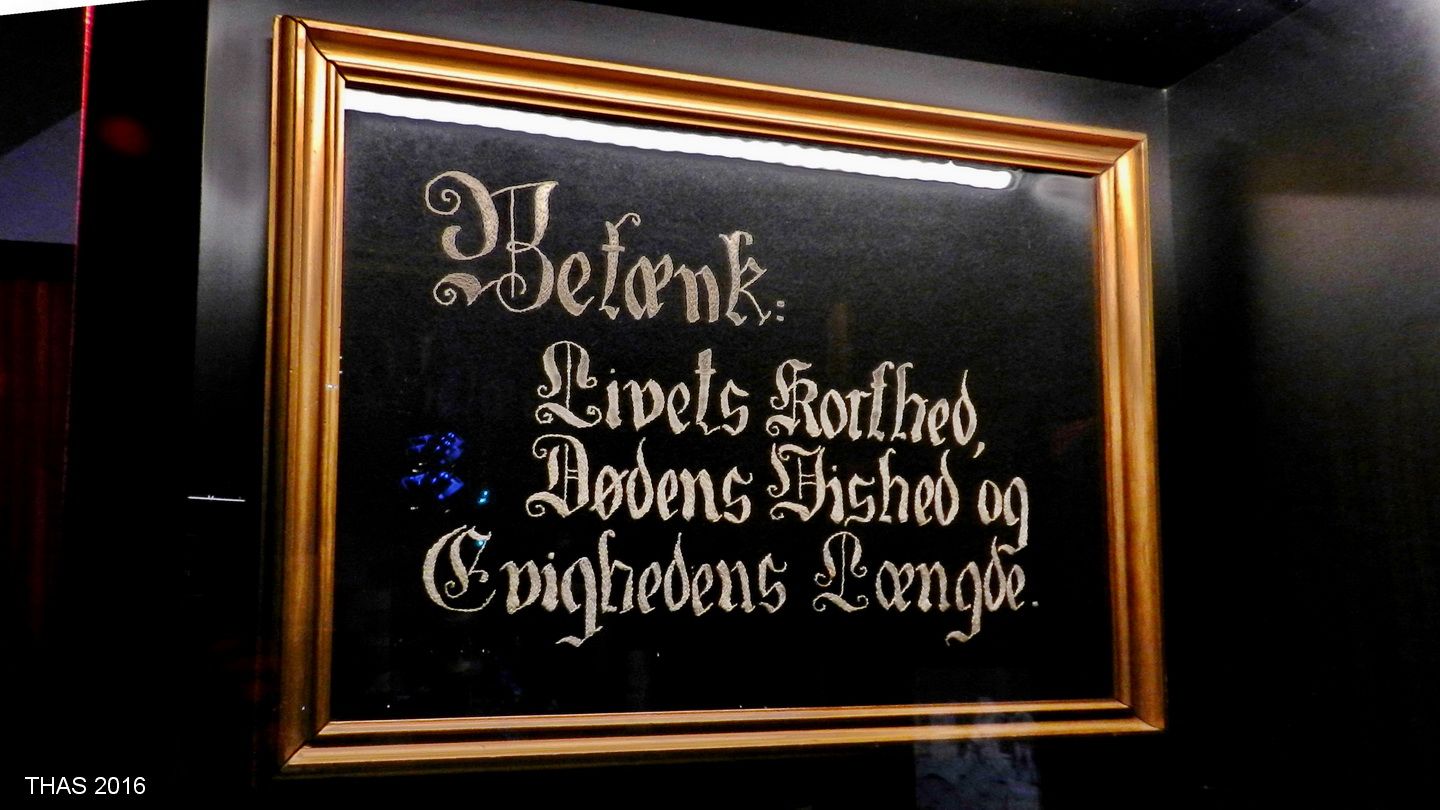 Betænk:
Livets Korthed,
Dødens Vished og
Evighedens Længde.
THAS 2016